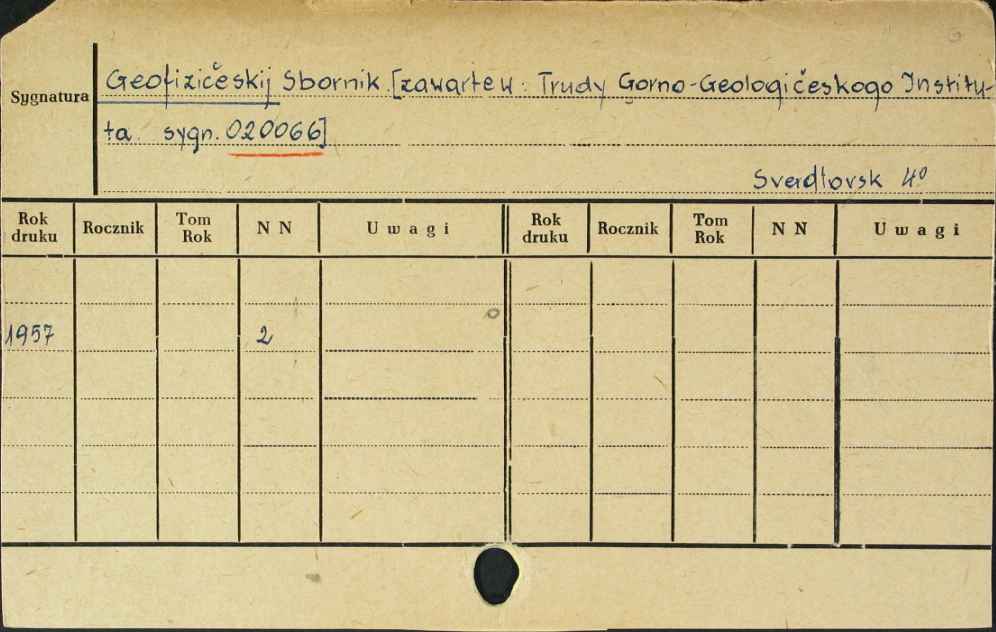 Sygnatura
Geofizičeskij Sbornik. [zawarte w: Trudy Gorno-Geologičeskogo Institu-
ta. sygn. 020066]
Sverdlovsk 4°
Rok druku Rocznik Tom Rok N N Uwagi Rok druku Rocznik Tom Rok N N Uwagi
1957 2